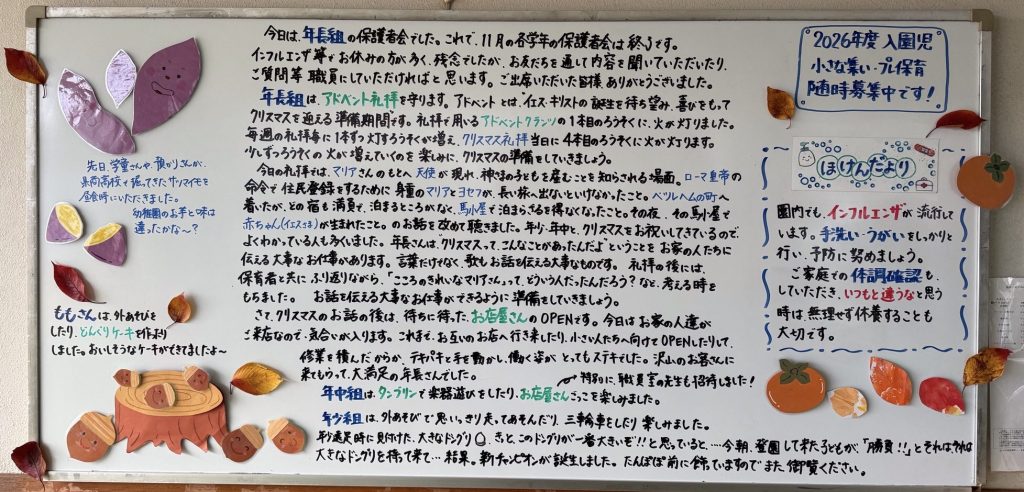 今日は、年長組の保護者会でした。これで、11月の各学年の保護者会は終了です。
インフルエンザ等でお休みの方が多く、残念でしたが、お友だちを通して内容を聞いていただいたり、
ご質問等 職員にしていただければと思います。ご出席いただいた皆様 ありがとうございました。
年長組は、アドベント礼拝を守ります。アドベントとは、イエス・キリストの誕生を待ち望み、喜びをもって
クリスマスを迎える準備期間です。礼拝で用いるアドベントクランツの1本目のろうそくに、火が灯りました。
毎週の礼拝毎に1本ずつ灯すろうそくが増え、クリスマス礼拝当日に4本目のろうそくに火が灯ります。
少しずつろうそくの火が増えていくのを楽しみに、クリスマスの準備をしていきましょう。
今日の礼拝では、マリアさんのもとへ 天使が現れ、神さまの子どもを産むことを知らされる場面。ローマ皇帝の
命令で住民登録をするために身重のマリアとヨセフが、長い旅へ出ないといけなかったこと。ベツレヘムの町へ
着いたが、どの宿も満員で、泊まるところがなく、馬小屋で泊まらざるを得なくなったこと。その夜、その馬小屋で
赤ちゃん(イエスさま)が生まれたこと。のお話を改めて聴きました。年少・年中と、クリスマスをお祝いしてきているので、
よくわかっている人も多くいました。年長さんは、クリスマスって、こんなことがあったんだよ"ということを お家の人たちに
伝える大事なお仕事があります。言葉だけでなく、歌もお話を伝える大事なものです。 礼拝の後には、
保育者と共に ふり返りながら、「こころのきれいなマリアさんって、どういう人だったんだろう?など、考える時を
もちました。 お話を伝える大事なお仕事ができるように準備をしていきましょう。
さて、クリスマスのお話の後は、待ちに待った お店屋さんのOPENです。今日はお家の人達が
ご来店なので、気合いが入ります。これまで、お互いのお店へ行き来したり、小さい人たちへ向けてOPENしたりして、
修業を積んだからか、テキパキと手を動かし、働く姿が とってもステキでした。沢山のお客さんに
来てもらって、大満足の年長さんでした。
特別に、職員室の先生も招待しました!
年中組は、タンブリンで楽器遊びをしたり、お店屋さんごっこを楽しみました。
年少組は、外あそびで思いっきり走ってあそんだり、三輪車をしたり 楽しみました。
年少遠足時に見付けた、大きなドングリ きっと、このドングリが一番大きいぞ!!と思っていると、…今朝、登園して来た子どもが、「勝負!!」と
大きなドングリを持って来て… 結果。新チャンピオンが誕生しました。たんぽぽ前に飾っていますのでまた、御覧ください。
先日、学童さんや、預かりさんが、
高校で掘ってきたサツマイモを
昼食時にいただきました。
幼稚園のお芋と味は
違ったかな〜?
ももさんは、外あそびを
したり、どんぐりケーキを作ったり
しました。おいしそうなケーキができてましたよ〜
2026年度 入園児
小さな集い・プレ保育
随時募集中です!
ほけんだより
園内でも、インフルエンザが 流行して
います。手洗い・うがいをしっかりと
行い、予防に 努めましょう。
ご家庭での体調確認も
していただき、いつもと違うなと思う
時は 無理せず休養することも
大切です。